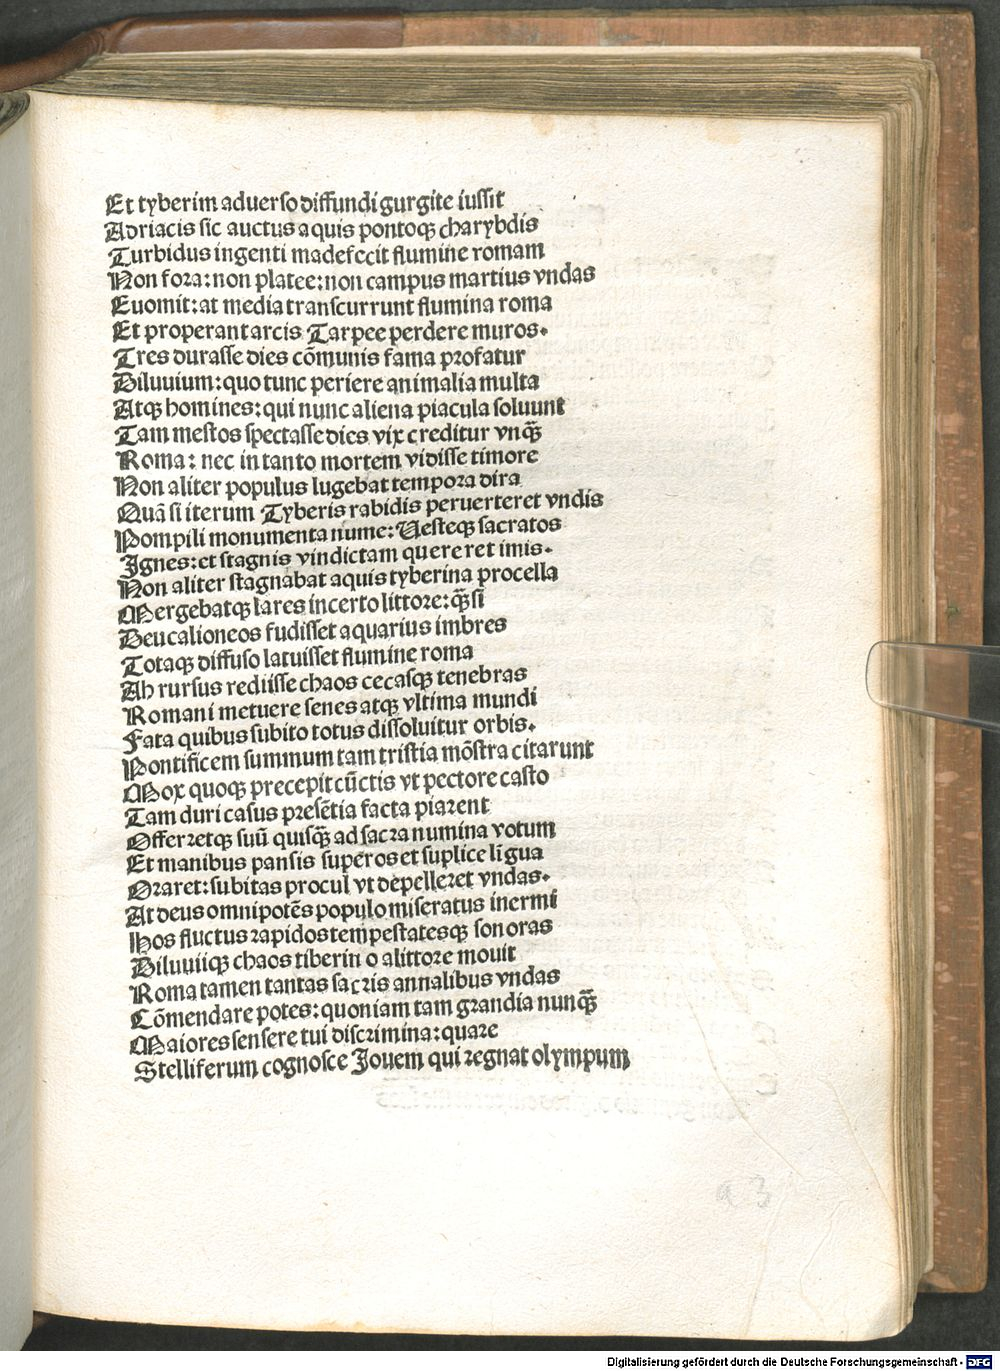 Et tyberim aduerso diffundi gurgite iussit
Adriacis sic auctus aquis pontoqꝫ charybdis
Turbidus ingenti madefecit flumine romam
Non fora: non platee: non campus martius vndas
Euomit: at media transcurrunt flumina roma
Et properant arcis Tarpee perdere muros.
Tres durasse dies cōmunis fama profatur
Diluuium: quo tunc periere animalia multa
Atqꝫ homines: qui nunc aliena piacula soluunt
Tam mestos spectasse dies vix creditur vnqꝫ̄
Roma: nec in tanto mortem vidisse timore
Non aliter populus lugebat tempora dira
Quā si iterum Tyberis rabidis peruerteret vndis
Pompili monumenta nume: Uesteqꝫ sacratos
Ignes: et stagnis vindictam quereret imis.
Non aliter stagnabat aquis tyberina procella
Mergebatqꝫ lares incerto littore: qꝫ̄ si
Deucalioneos fudisset aquarius imbres
Totaqꝫ diffuso latuisset flumine roma
Ah rursus rediisse chaos cecasqꝫ tenebras
Romani metuere senes atqꝫ vltima mundi
Fata quibus subito totus dissoluitur orbis.
Pontificem summum tam tristia mōstra citarunt
Mox quoqꝫ precepit cūctis vt pectore casto
Tam duri casus presētia facta piarent
Offerretqꝫ suū quisqꝫ̄ ad sacra numina votum
Et manibus pansis superos et suplice līgua
Oraret: subitas procul vt depelleret vndas.
At deus omnipotēs populo miseratus inermi
Hos fluctus rapidos tempestatesqꝫ sonoras
Diluuiiqꝫ chaos tiberin o a littore mouit
Roma tamen tantas sacris annalibus vndas
Cōmendare potes: quoniam tam grandia nunqꝫ̄
Maiores sensere tui discrimina: quare
Stelliferum cognosce Jouem qui regnat olympum
a 3
Digitalisierung gefördert durch die Deutsche Forschungsgemeinschaft - DFG